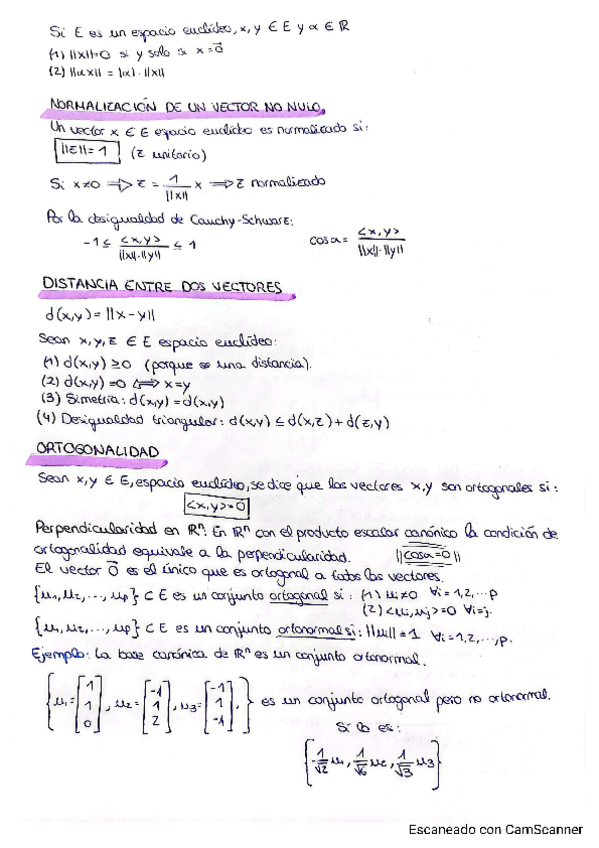 Si E es un espacio euclídeo, x, y ∈ E y α ∈ ℝ
(1) ||x||=0 si y solo si x=0⃗
(2) ||αx|| = |α| · ||x||
NORMALIZACIÓN DE UN VECTOR NO NULO
Un vector x ∈ E espacio euclídeo es normalizado si:
||z|| = 1 (z unitario)
Si x≠0 ⟹ z = 1/||x|| x ⟹ z normalizado
Por la desigualdad de Cauchy-Schwarz:
-1 ≤ <x,y>/||x||·||y|| ≤ 1 cos α = <x,y>/||x||·||y||
DISTANCIA ENTRE DOS VECTORES
d(x,y) = ||x-y||
Sean x, y, z ∈ E espacio euclídeo:
(1) d(x,y) ≥0 (porque es una distancia).
(2) d(x,y) =0 ⟺ x=y
(3) Simetría: d(x,y) = d(x,y)
(4) Desigualdad triangular: d(x,y) ≤ d(x,z) + d(z,y)
ORTOGONALIDAD
Sean x,y ∈ E, espacio euclídeo, se dice que los vectores x,y son ortogonales si:
<x,y> = 0
Perpendicularidad en ℝⁿ: En ℝⁿ con el producto escalar canónico la condición de
ortogonalidad equivale a la perpendicularidad. ||cos α=0||
El vector 0⃗ es el único que es ortogonal a todos los vectores.
{u₁, u₂, ..., up} ⊂ E es un conjunto ortogonal si: (1) ui ≠0 ∀i = 1,2,...p
(2) <ui, uj> =0 ∀i=j.
{u₁, u₂, ..., up} ⊂ E es un conjunto ortonormal si: ||ui|| = 1 ∀i = 1,2,...,p.
Ejemplo: La base canónica de ℝⁿ es un conjunto ortonormal.
{u₁=[1 1 0], u₂=[-1 1 2], u₃=[-1 1 -1],} es un conjunto ortogonal pero no ortonormal.
Sí lo es:
{1/√2 u₁, 1/√6 u₂, 1/√3 u₃}
Escaneado con CamScanner